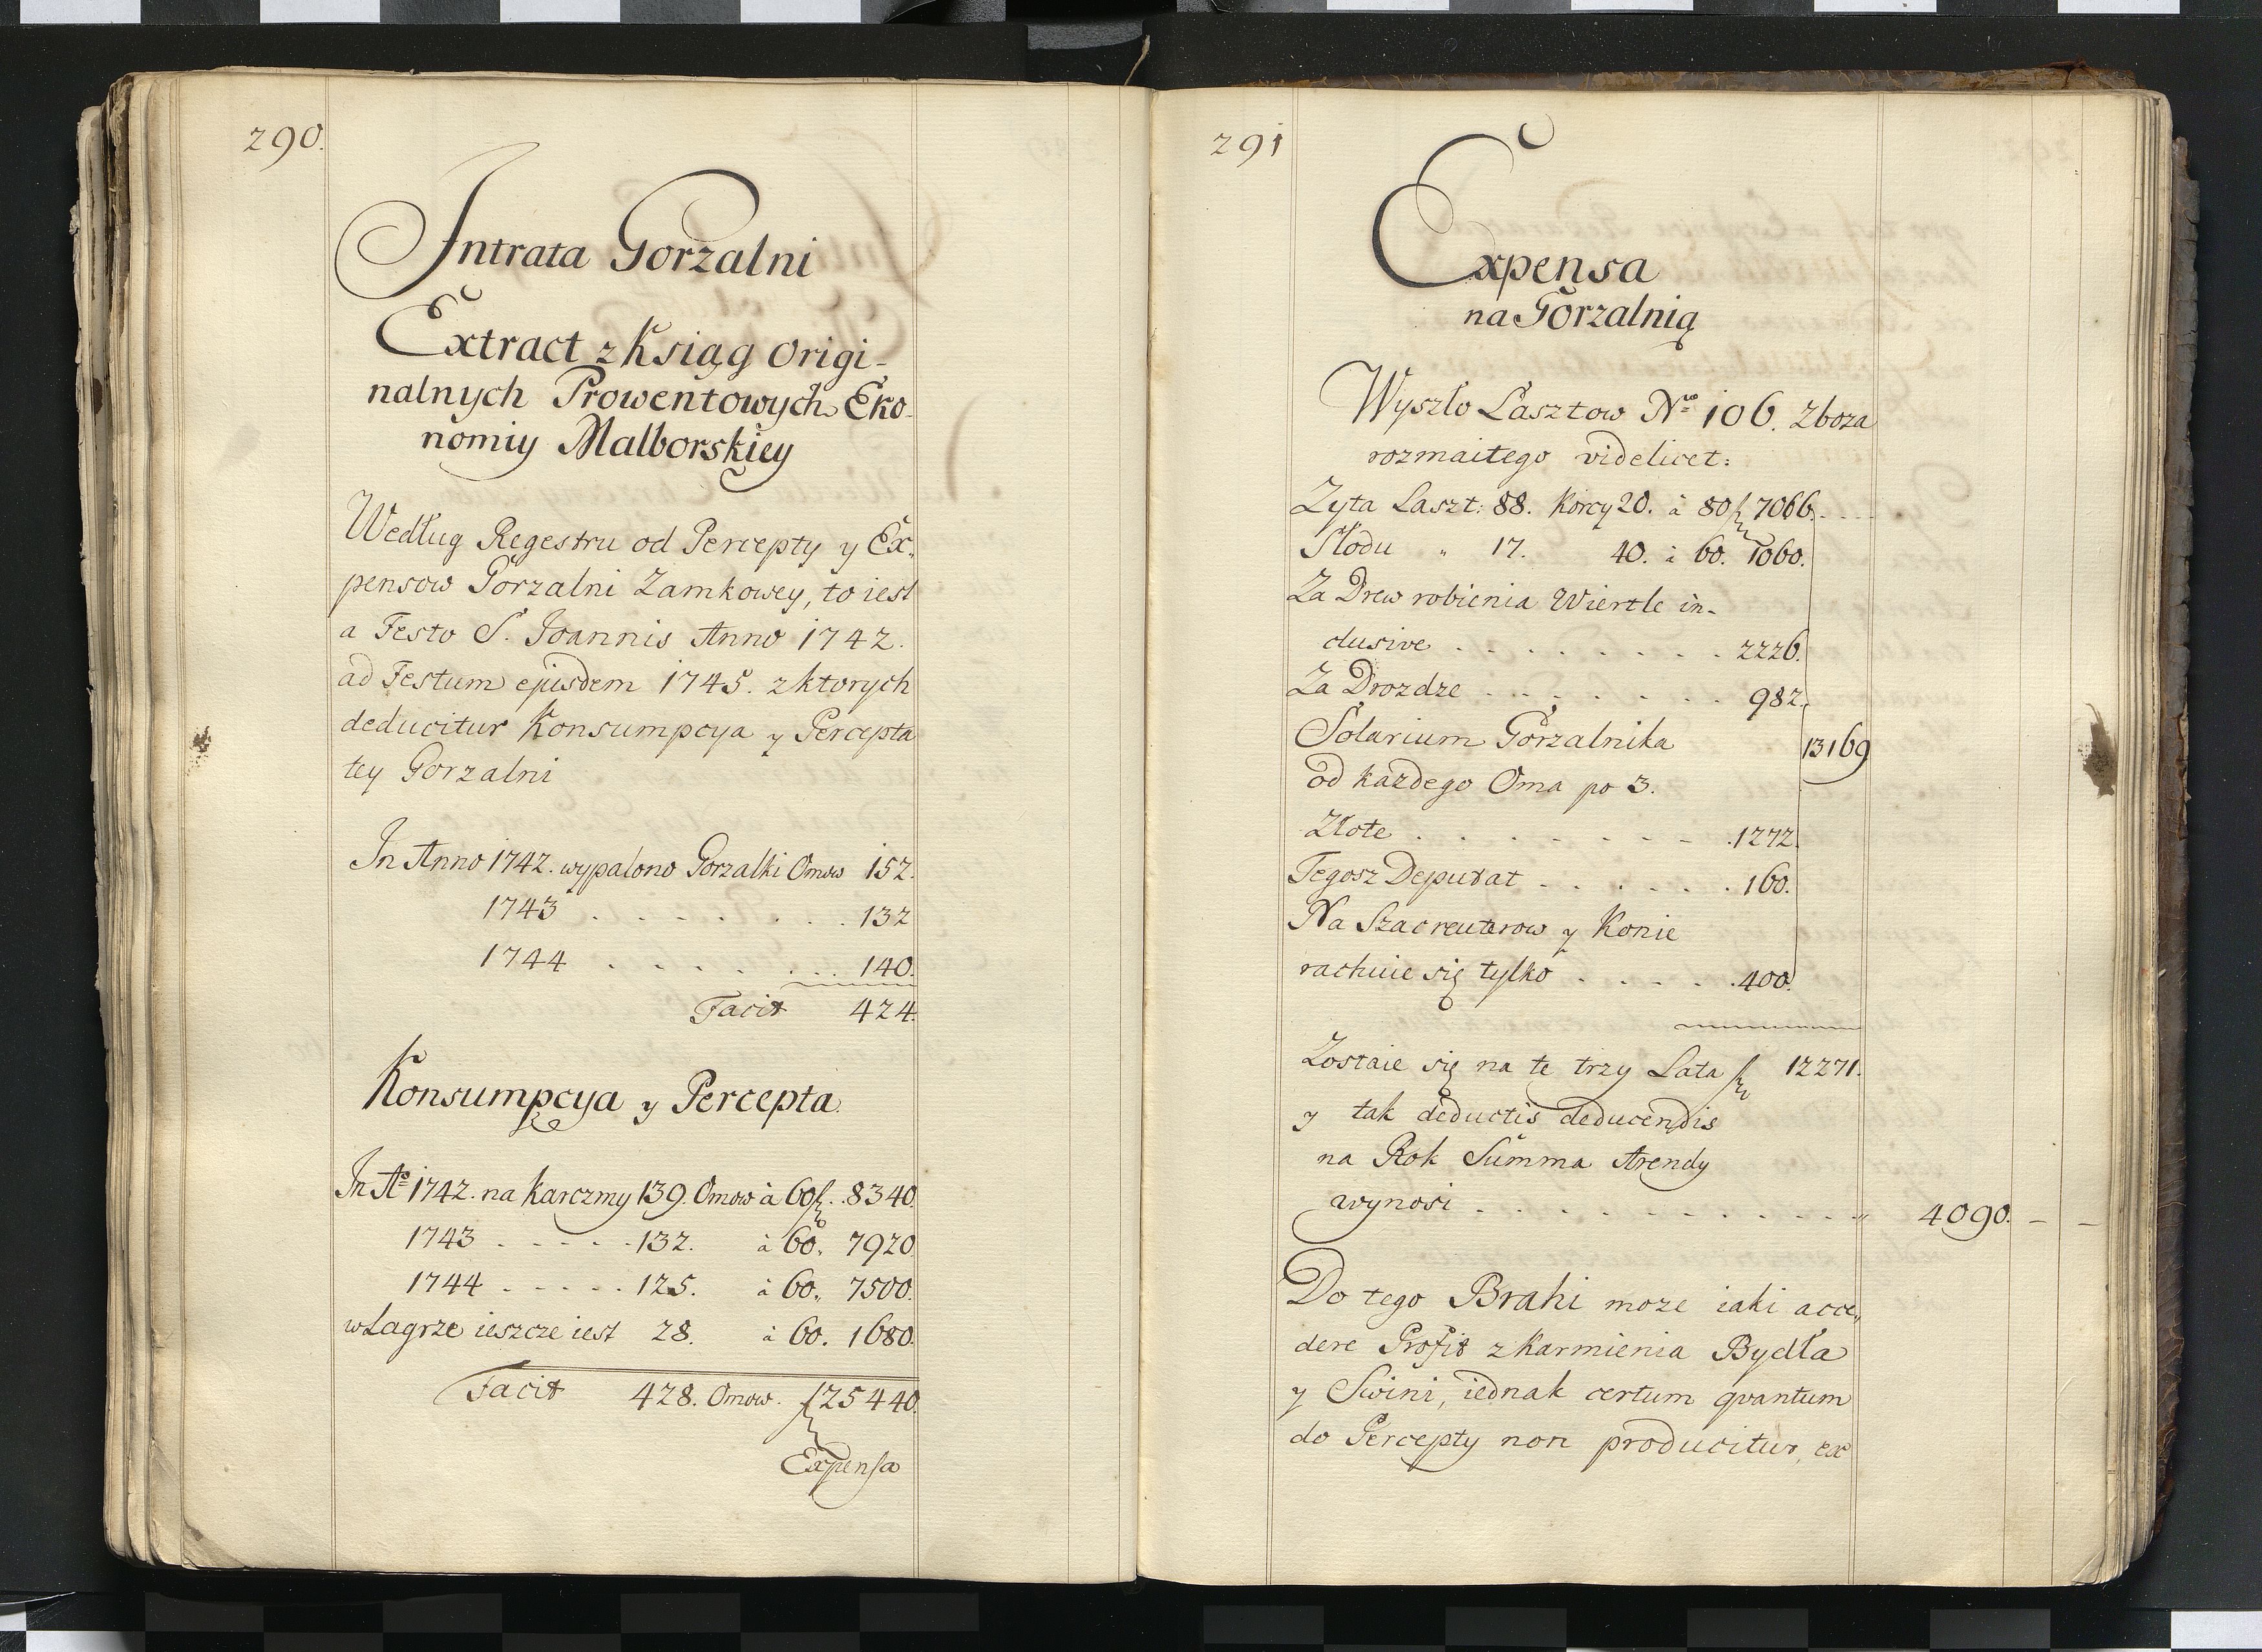 290.
Intrata Gorzalni
Extract z Ksiąg Origi-
nalnych Prowentowych Eko-
nomiy Malborskiey
Według Regestru od Percepty y Ex-
pensow Gorzalni Zamkowey, to iest
a Festo S. Joannis Anno 1742.
ad Festum ejusdem 1745. z ktorych
deducitur Konsumpcya y Percepta
tey Gorzalni
In Anno 1742. wypalono Gorzalki Omow 152.
1743 . . . . . . . 132
1744 . . . . . . . 140.
Facit 424.
Konsumpcya y Percepta.
In Aº 1742. na Karczmy 139. Omow à 60 f. 8340.
1743 . . . . . 132. à 60. 7920.
1744 . . . . . 125. à 60. 7500.
w Lagrze ieszcze iest 28. à 60. 1680.
Facit 428. Omow. f 25440.
Expensa
291
Expensa
na Gorzalnią
Wyszło Lasztow Nº 106. Zboza
rozmaitego videlicet:
Zyta Laszt: 88. Korcy 20. à 80 f 7066. . . .
Słodu " 17. 40. à 60. 1060.
Za Drew robienia Wiertle in-
clusive . . . . . . . . . 2226.
Za Drozdze . . . . . . . . 982.
Solarium Gorzalnika 13169
od kazdego Oma po 3.
Złote . . . . . . . . 1272.
Tegosz Deputat . . . . . . 160.
Na Szaoreuterow y Konie
rachuie się tylko . . . . . 400.
Zostaie się na te trzy Lata f 12271.
y tak deductis deducendis
na Rok Summa Arendy
wynosi . . . . . . . . . . . " 4090. – –
Do tego Brahi moze iaki acce-
dere Profit z Karmienia Bydła
y Swini, iednak certum qvantum
do Percepty non producitur, ex